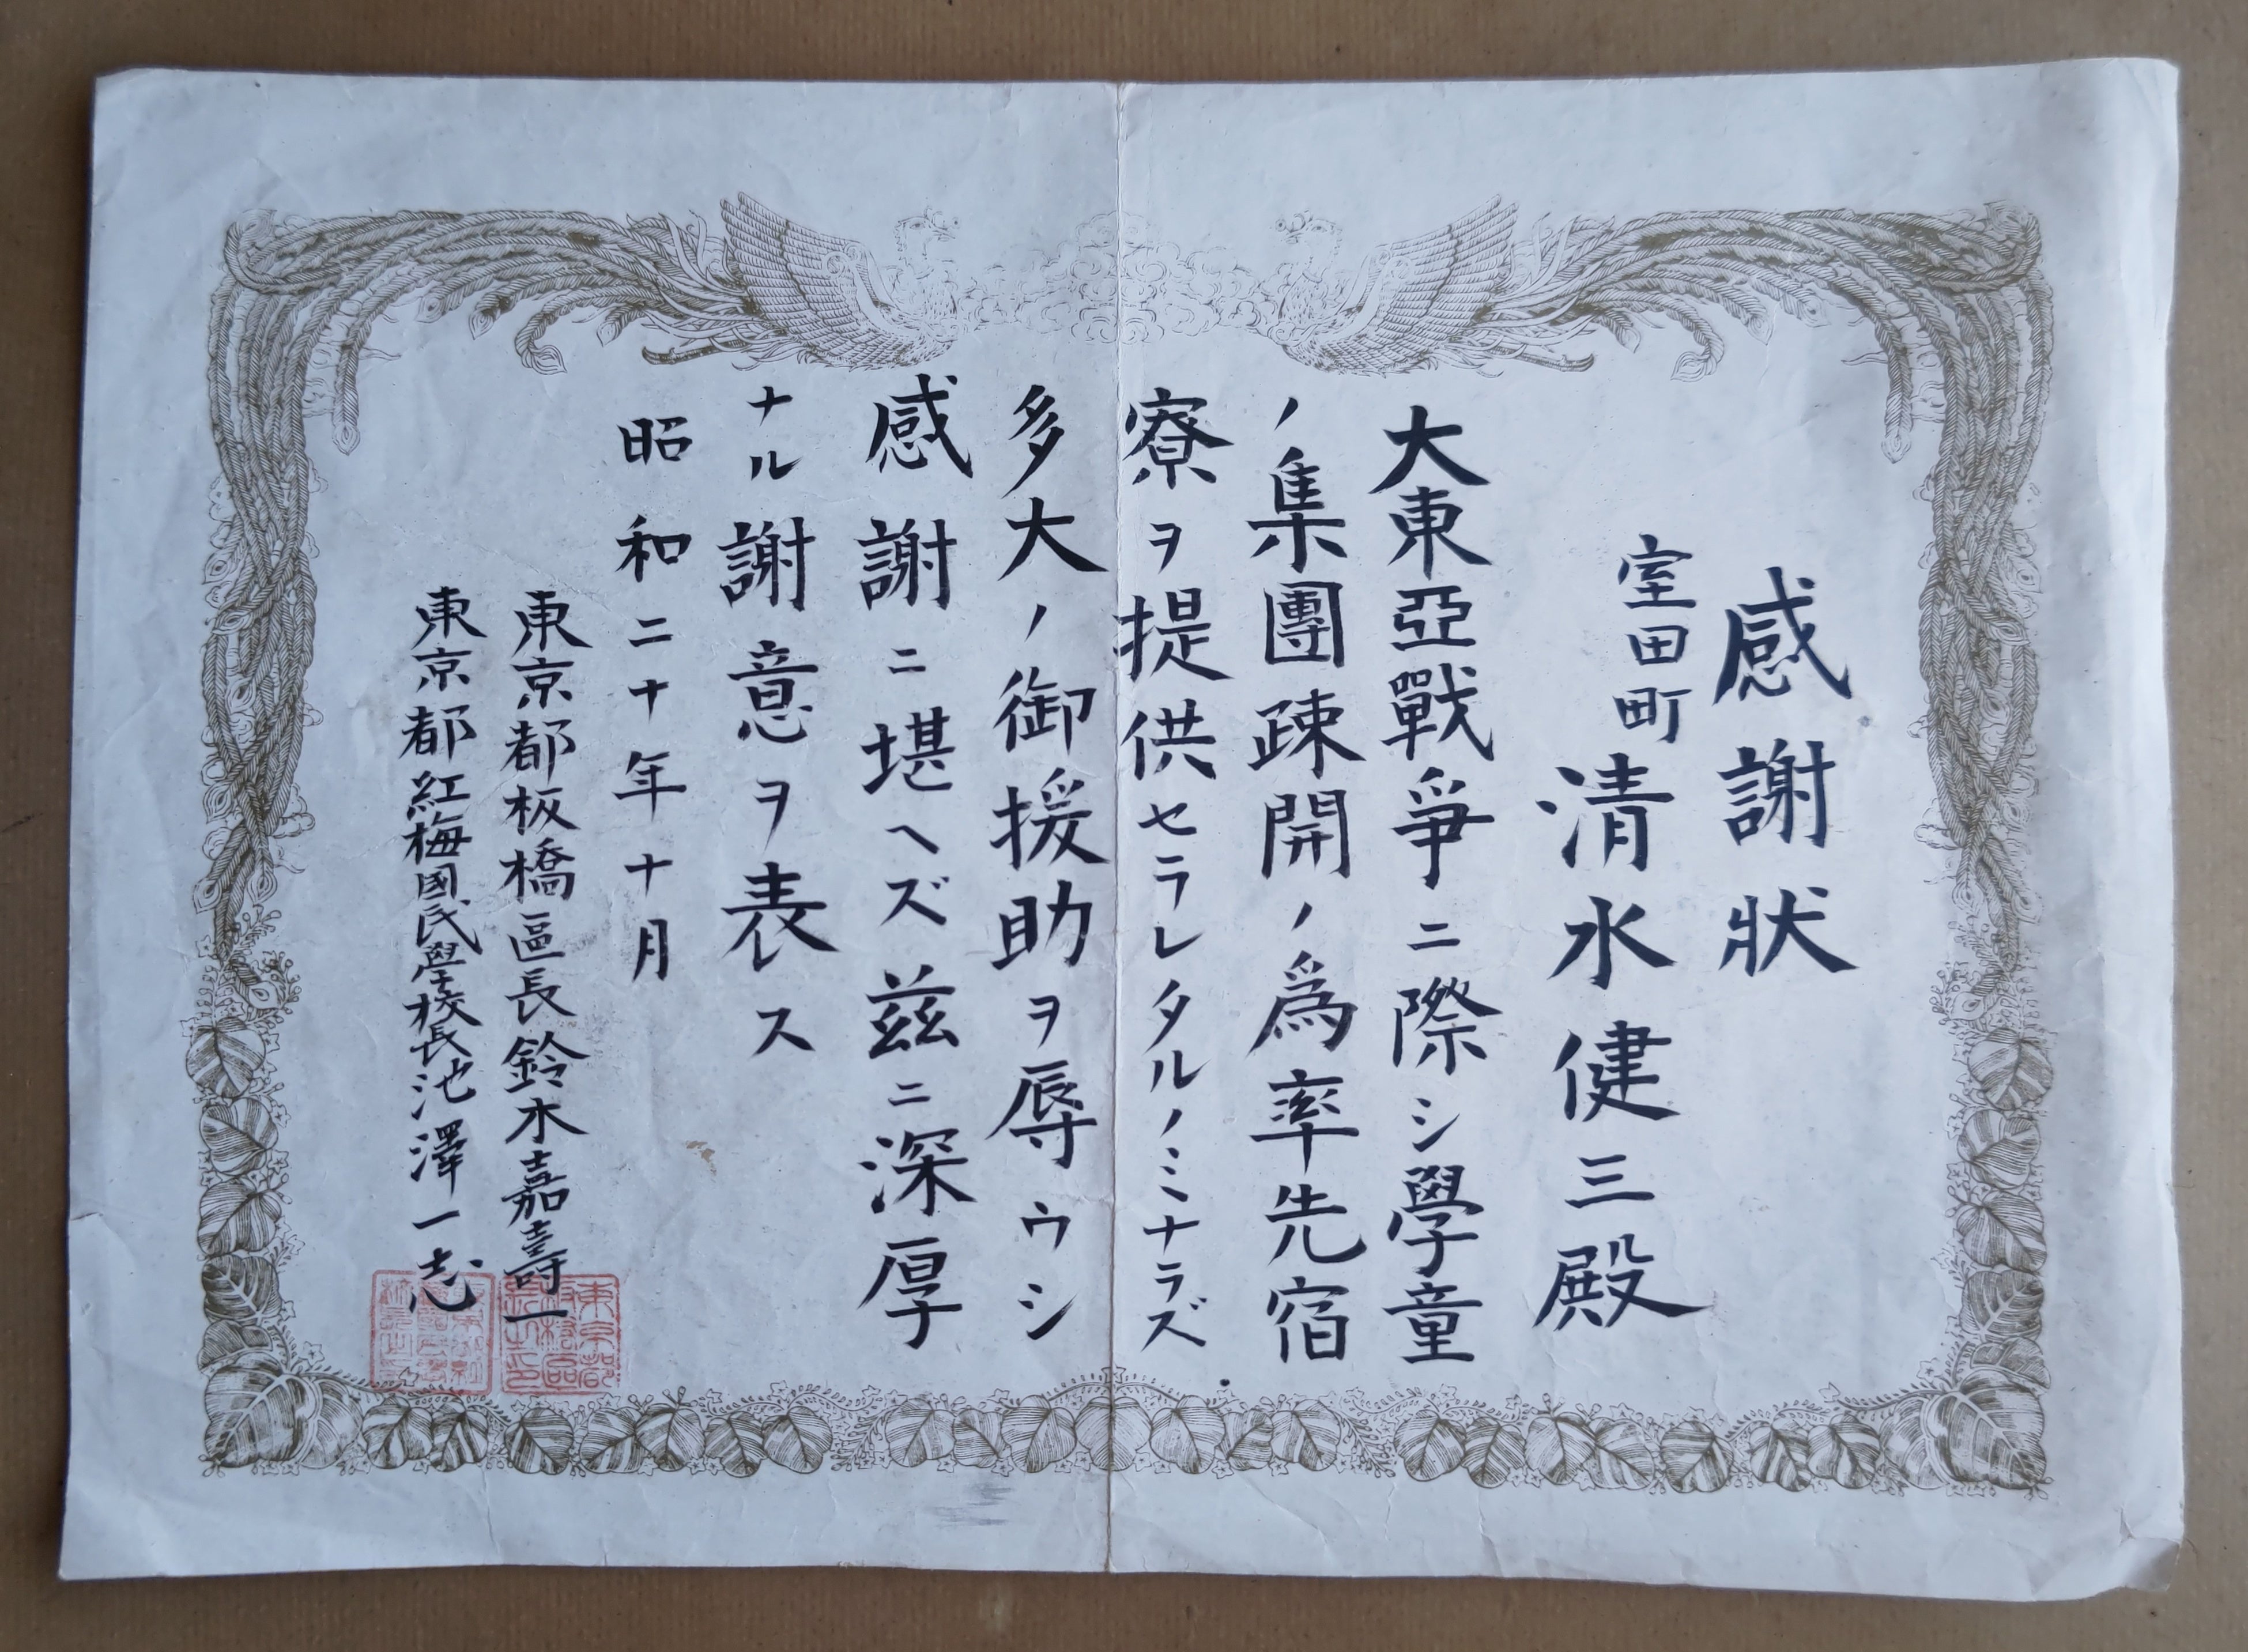 感謝狀
室田町
清水健三殿
大東亞戰爭ニ際シ學童
ノ集團疎開ノ爲率先宿
寮ヲ提供セラレタルノミナラズ
多大ノ御援助ヲ辱ウシ
感謝ニ堪ヘズ茲ニ深厚
ナル謝意ヲ表ス
昭和二十年十月
東京都板橋區長鈴木嘉壽一
東京都紅梅國民學校長池澤一志